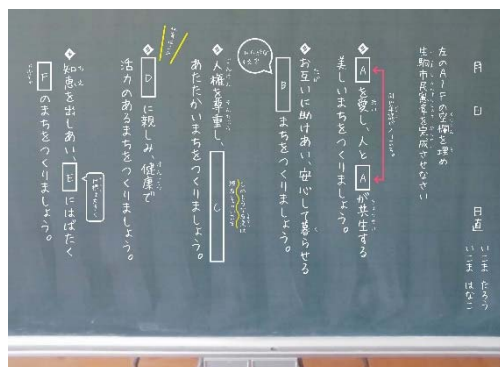 月 日 日直 いこま たろう
いこま はなこ
左のA〜Fの空欄を埋め
生駒市民憲章を完成させなさい
◆A を愛し、人と A が共生する
美しいまちをつくりましょう。
◆お互いに助けあい、安心して暮らせる
B まちをつくりましょう。
◆人権を尊重し、 C
あたたかいまちをつくりましょう。
◆D に親しみ、健康で
活力のあるまちをつくりましょう。
◆知恵を出しあい、E にはばたく
F のまちをつくりましょう。